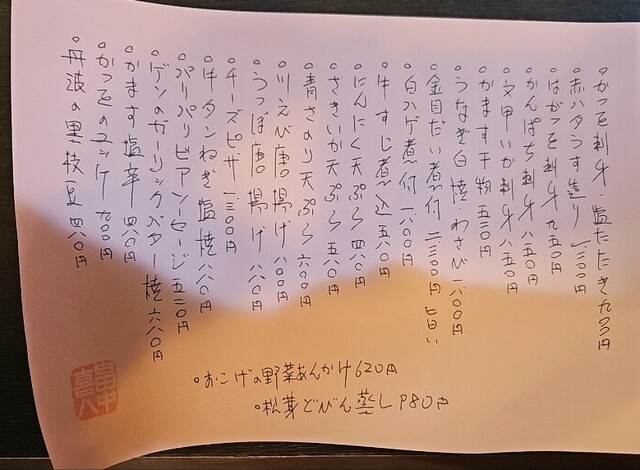 ○かつを刺身・塩たたき九〇〇円
○赤ハタうす造り 一二〇〇円
○はがつを刺身九五〇円
○かんぱち刺身八五〇円
○文甲いか刺身八五〇円
○かます干物五五〇円
○うなぎ白焼わさび一八〇〇円
○金目だい煮付二二〇〇円
○白ハゲ煮付一八〇〇円
○牛すじ煮込五八〇円
○にんにく天ぷら四八〇円
○さきいか天ぷら五八〇円
○青さのり天ぷら六〇〇円
○川えび唐揚げ八〇〇円
○うつぼ唐揚げ八八〇円
○チーズピザ一二〇〇円
○牛タンねぎ塩焼八八〇円
○パリパリビアソーセージ五二〇円
○ゲソのガーリックバター焼六八〇円
○かます塩辛四八〇円
○かつをのユッケ九〇〇円
○丹波の黒枝豆四八〇円
○おこげの野菜あんかけ620円
○松茸どびん蒸し980円